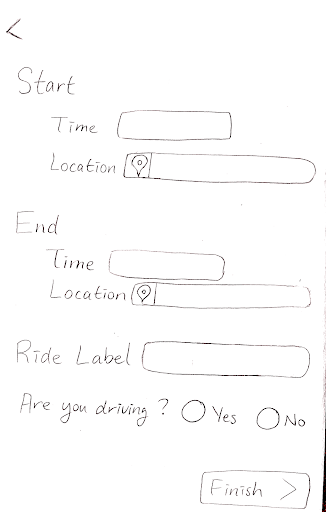 Start
Time
Location
End
Time
Location
Ride Label
Are you driving? Yes No
Finish >